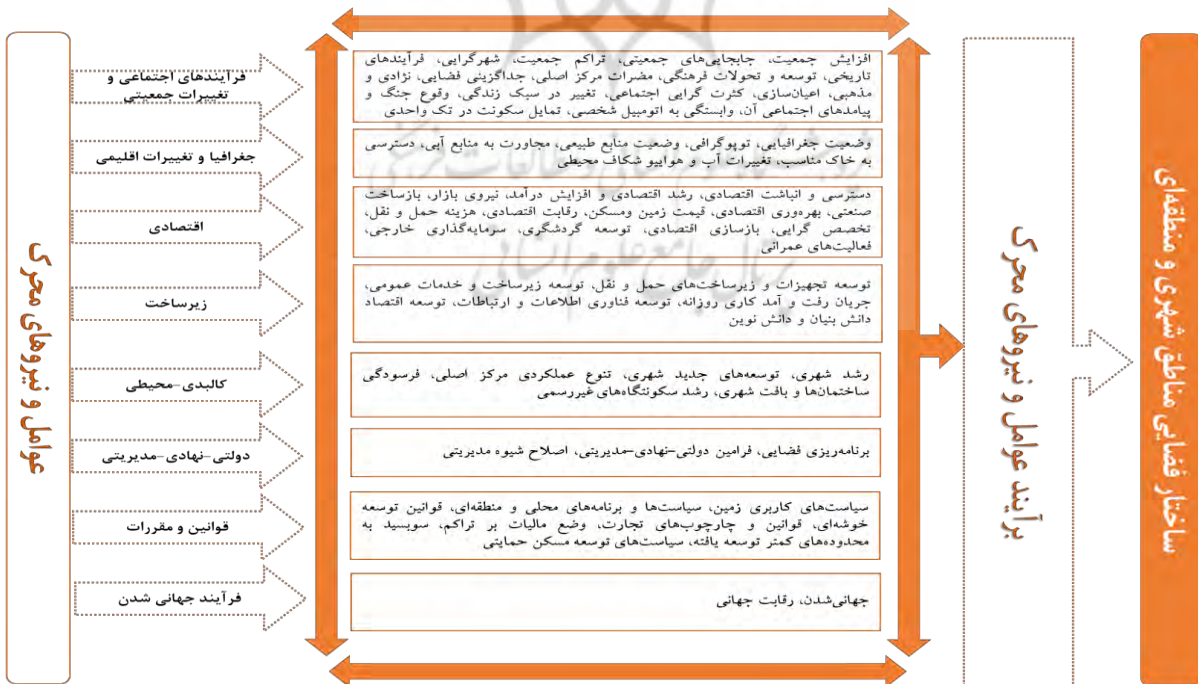 عوامل و نیروهای محرک
فرآیندهای اجتماعی و
تغییرات جمعیتی
افزایش جمعیت، جابجایی‌های جمعیتی، تراکم جمعیت، شهرگرایی، فرآیندهای
تاریخی، توسعه و تحولات فرهنگی، مضرات مرکز اصلی، جداگزینی فضایی، نژادی و
مذهبی، اعیان‌سازی، کثرت گرایی اجتماعی، تغییر در سبک زندگی، وقوع جنگ و
پیامدهای اجتماعی آن، وابستگی به اتومبیل شخصی، تمایل سکونت در تک واحدی
جغرافیا و تغییرات اقلیمی
وضعیت جغرافیایی، توپوگرافی، وضعیت منابع طبیعی، مجاورت به منابع آبی، دسترسی
به خاک مناسب، تغییرات آب و هواییو شکاف محیطی
اقتصادی
دسترسی و انباشت اقتصادی، رشد اقتصادی و افزایش درآمد، نیروی بازار، بازساخت
صنعتی، بهره‌وری اقتصادی، قیمت زمین ومسکن، رقابت اقتصادی، هزینه حمل و نقل،
تخصص گرایی، بازسازی اقتصادی، توسعه گردشگری، سرمایه‌گذاری خارجی،
فعالیت‌های عمرانی
زیرساخت
توسعه تجهیزات و زیرساخت‌های حمل و نقل، توسعه زیرساخت و خدمات عمومی،
جریان رفت و آمد کاری روزانه، توسعه فناوری اطلاعات و ارتباطات، توسعه اقتصاد
دانش بنیان و دانش نوین
کالبدی-محیطی
رشد شهری، توسعه‌های جدید شهری، تنوع عملکردی مرکز اصلی، فرسودگی
ساختمان‌ها و بافت شهری، رشد سکونتگاه‌های غیررسمی
دولتی-نهادی-مدیریتی
برنامه‌ریزی فضایی، فرامین دولتی-نهادی-مدیریتی، اصلاح شیوه مدیریتی
قوانین و مقررات
سیاست‌های کاربری زمین، سیاست‌ها و برنامه‌های محلی و منطقه‌ای، قوانین توسعه
خوشه‌ای، قوانین و چارچوب‌های تجارت، وضع مالیات بر تراکم، سوبسید به
محدوده‌های کمتر توسعه یافته، سیاست‌های توسعه مسکن حمایتی
فرآیند جهانی شدن
جهانی‌شدن، رقابت جهانی
برآیند عوامل و نیروهای محرک
ساختار فضایی مناطق شهری و منطقه‌ای
پژوهشگاه علوم انسانی و مطالعات فرهنگی
پرتال جامع علوم انسانی